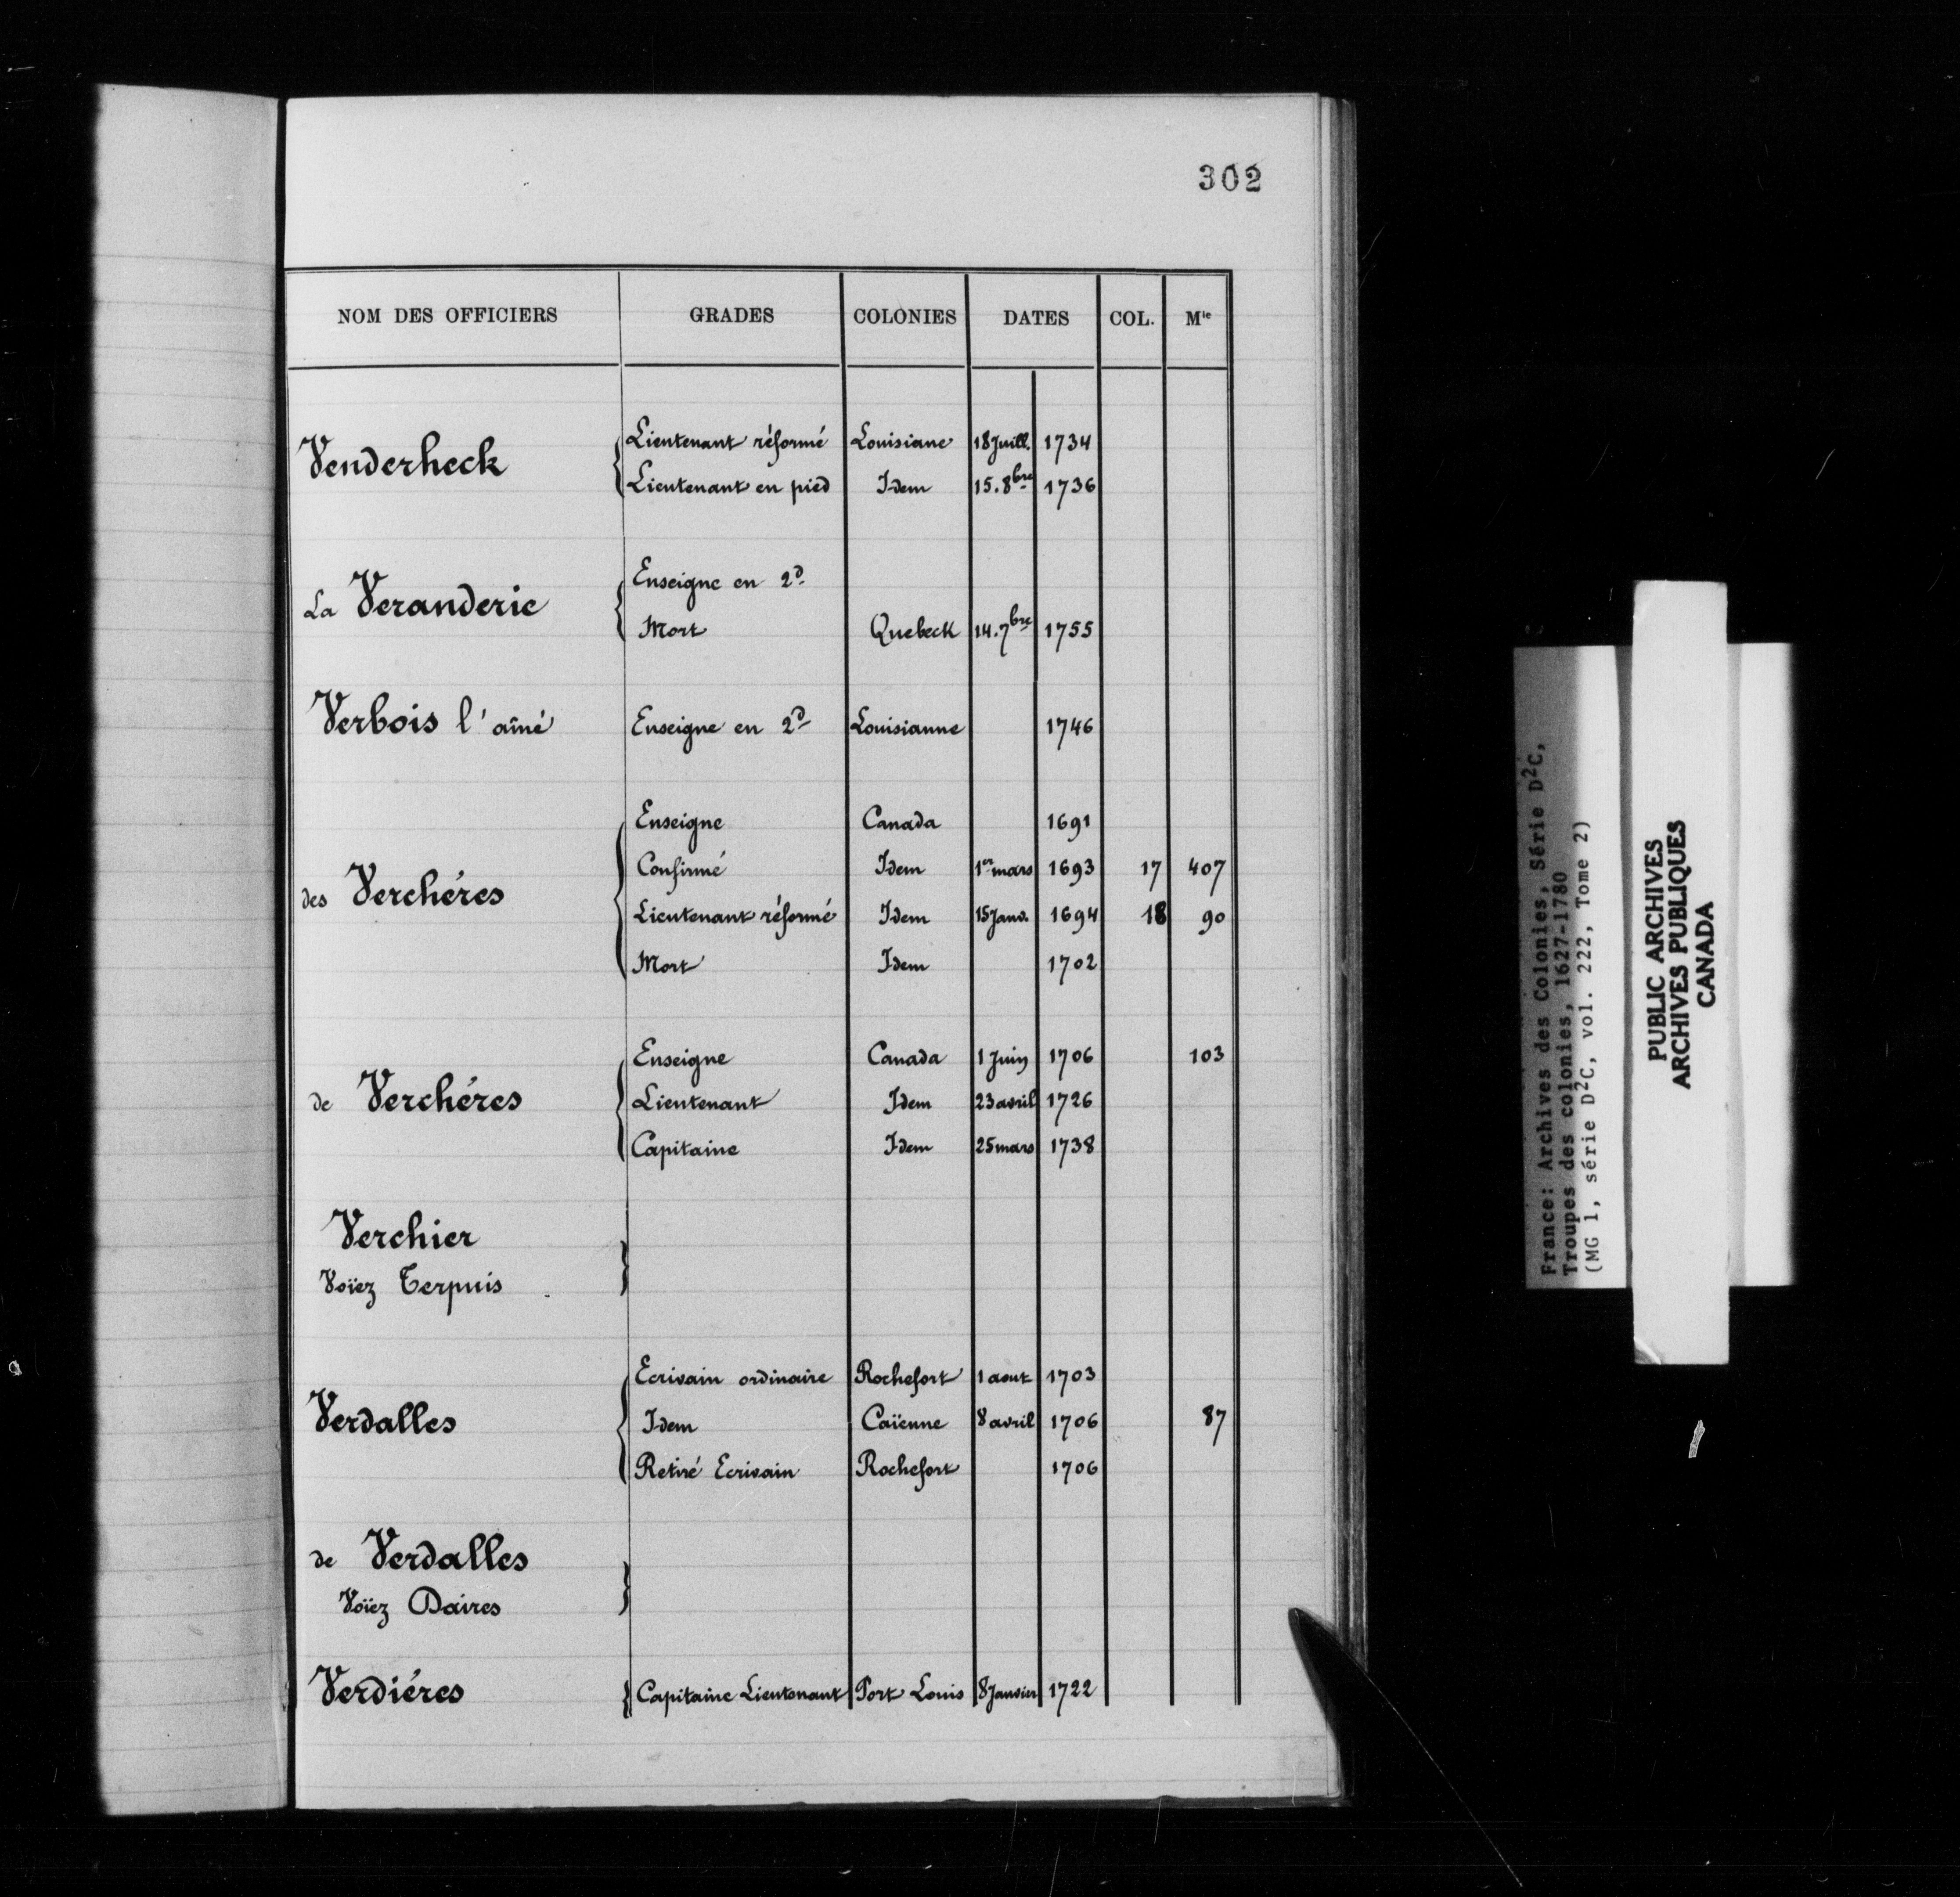 302
NOM DES OFFICIERS GRADES COLONIES DATES COL. Mle
Venderheck Lieutenant réformé Louisiane 18 Juill. 1734
Lieutenant en pied Idem 15. 8bre 1736
La Veranderie Enseigne en 2d
Mort Quebeck 14. 7bre 1755
Verbois l'aîné Enseigne en 2d Louisianne 1746
des Verchéres Enseigne Canada 1691
Confirmé Idem 1er mars 1693 17 407
Lieutenant réformé Idem 15 Janv. 1694 18 90
Mort Idem 1702
de Verchéres Enseigne Canada 1 Juin 1706 103
Lieutenant Idem 23 avril 1726
Capitaine Idem 25 mars 1738
Verchier
Voïez Terpuis
Verdalles Ecrivain ordinaire Rochefort 1 aout 1703
Idem Caïenne 8 avril 1706 87
Retiré Ecrivain Rochefort 1706
de Verdalles
Voïez Daires
Verdiéres Capitaine Lieutenant Port Louis 8 Janvier 1722
France: Archives des Colonies, Série D2C,
Troupes des colonies, 1627-1780
(MG 1, série D2C, vol. 222, Tome 2)
PUBLIC ARCHIVES
ARCHIVES PUBLIQUES
CANADA